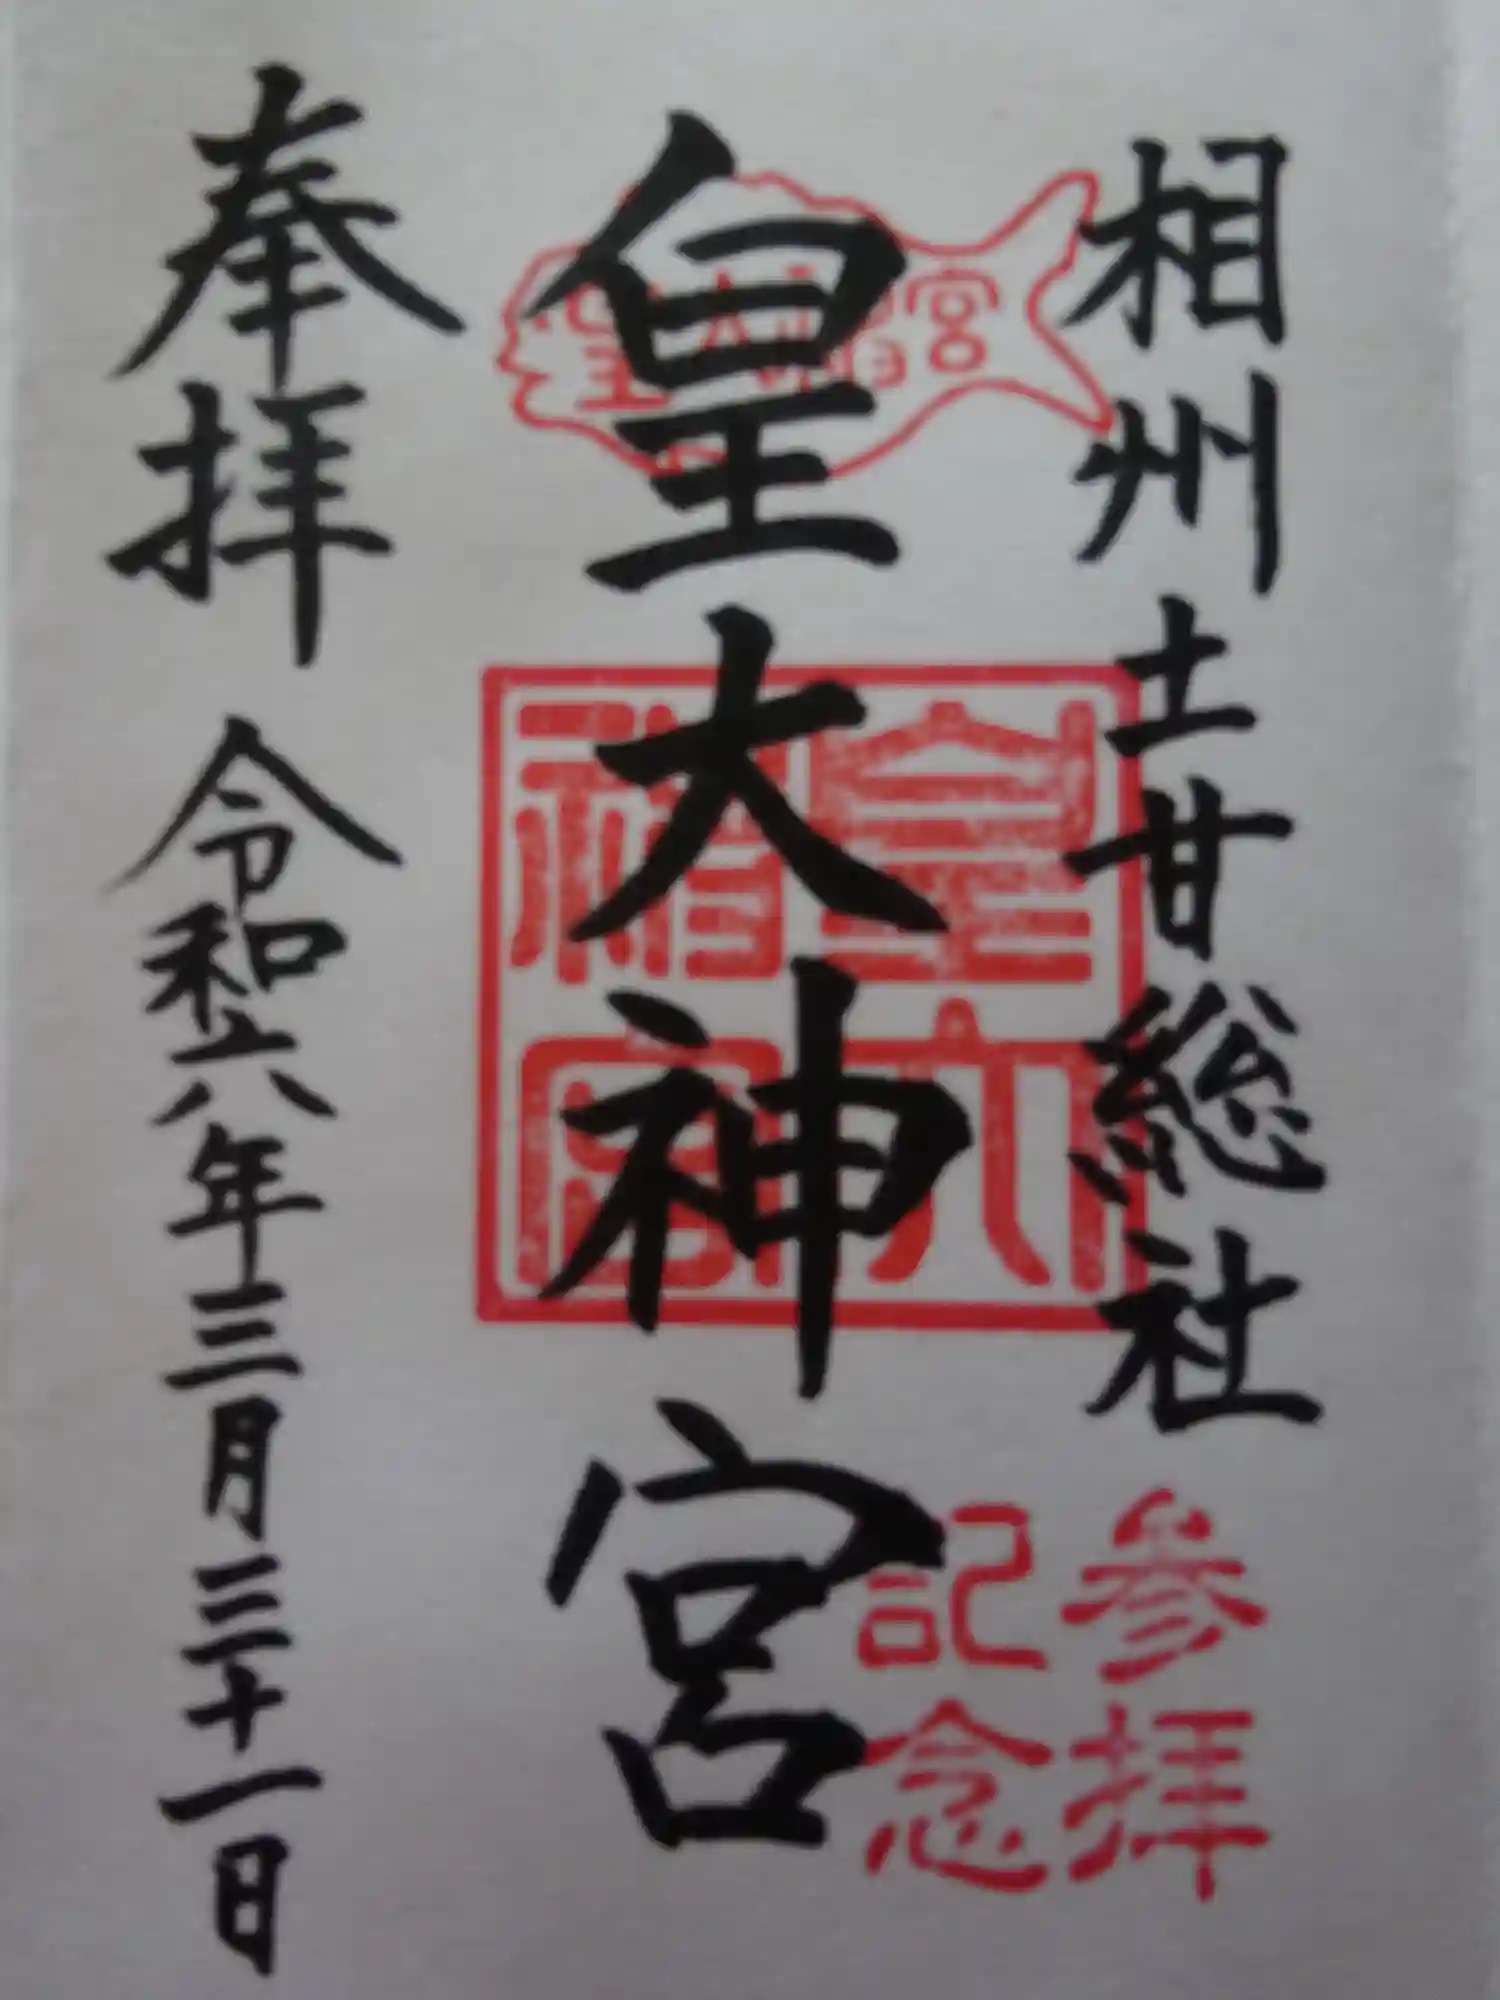 相州土甘総社
参拝
記念
皇大神宮
皇大神宮
皇大神宮
奉拝 令和六年三月三十一日